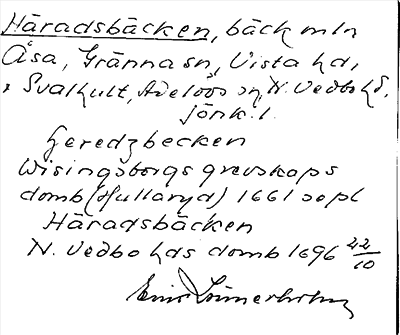 Häradsbäcken, bäck mln
Åsa, Gränna sn, Vista hd,
Svalhult, Adelövs sn, N. Vedbo hd.
Jönk. l.
heredzbecken
Wisingsborgs grevskaps
domb (Hullaryd) 1661 sept
Häradsbäcken
N. Vedbo hds domb 1696 22/10